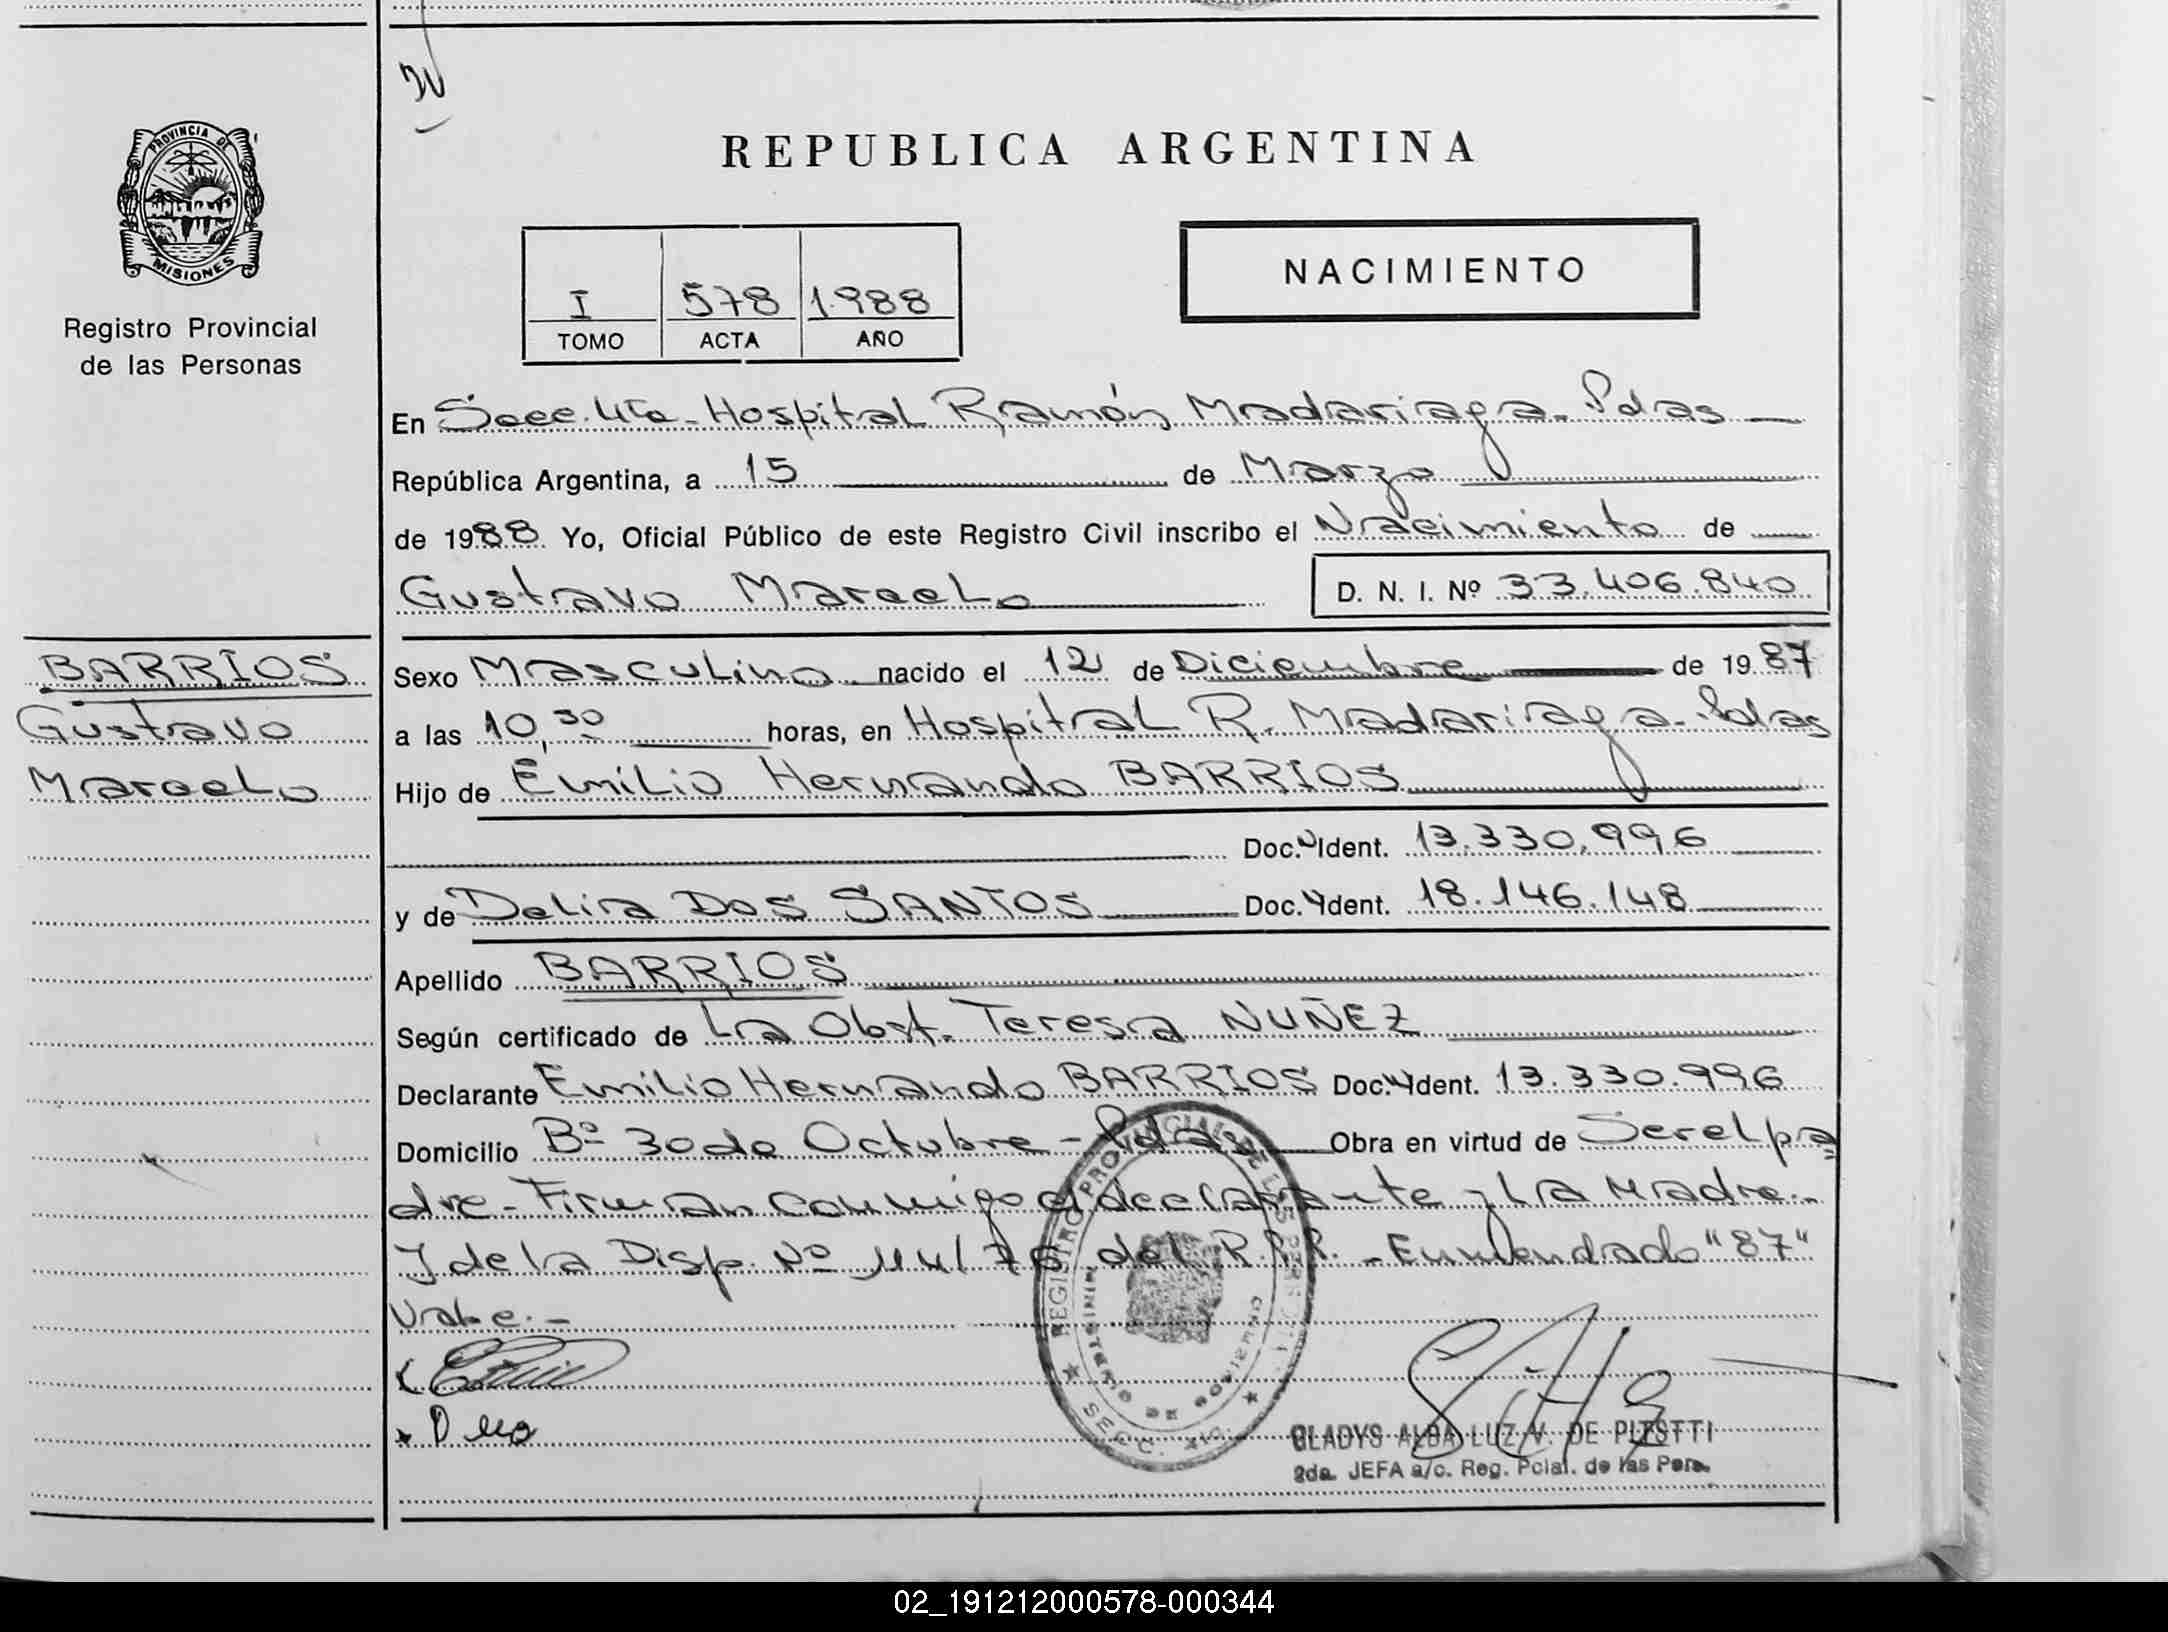 PROVINCIA DE
MISIONES
Registro Provincial
de las Personas
REPUBLICA ARGENTINA
I 578 1.988
TOMO ACTA AÑO
NACIMIENTO
En Secc. 4ta. Hospital Ramón Madariaga - Pdas
República Argentina, a 15 de Marzo
de 1988 Yo, Oficial Público de este Registro Civil inscribo el Nacimiento de
Gustavo Marcelo D. N. I. Nº 33.406.840
BARRIOS
Gustavo
Marcelo
Sexo Masculino nacido el 12 de Diciembre de 1987
a las 10,30 horas, en Hospital R. Madariaga - Pdas
Hijo de Emilio Hernando BARRIOS
Doc. Ident. 13.330.996
y de Delia Dos SANTOS Doc. Ident. 18.146.148
Apellido BARRIOS
Según certificado de La Obst. Teresa NUÑEZ
Declarante Emilio Hernando BARRIOS Doc. Ident. 13.330.996
Domicilio Bº 30 de Octubre - Pdas Obra en virtud de Ser el pa
dre - Firman conmigo el declarante y la Madre.-
J de la Disp. Nº 114/76 del R.P.P. - Enmendado "87"
Vale.-
REGISTRO PROVINCIAL DE LAS PERSONAS
MINISTERIO DE GOBIERNO
SECC. 4ta
GLADYS ALBA LUZ V. DE
2da. JEFA a/c. Reg. Pcial. de las Pers.
02_191212000578-000344